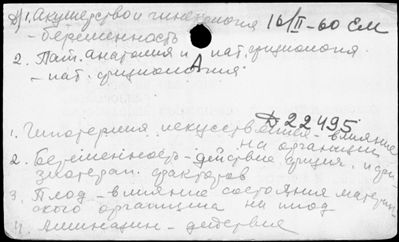 Д) 1. Акушерство и гинекология 16/II-60 ЕМ
- беременность
2. Пат. анатомия и пат. физиология.
- пат. физиология
Д 22495
1. Гипотермия искусственная - влияние
на организм
2. Беременность - действие физич. и физиотерап. факторов
3. Плод - влияние состояния материнского организма на плод
4. Аминазин - действие